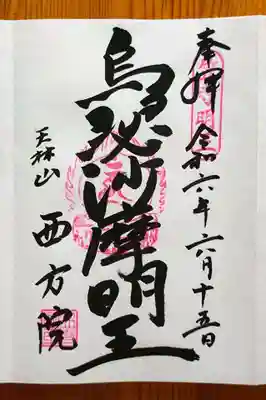 奉拝 令和六年六月十五日
烏枢沙摩明王
天林山
西方院